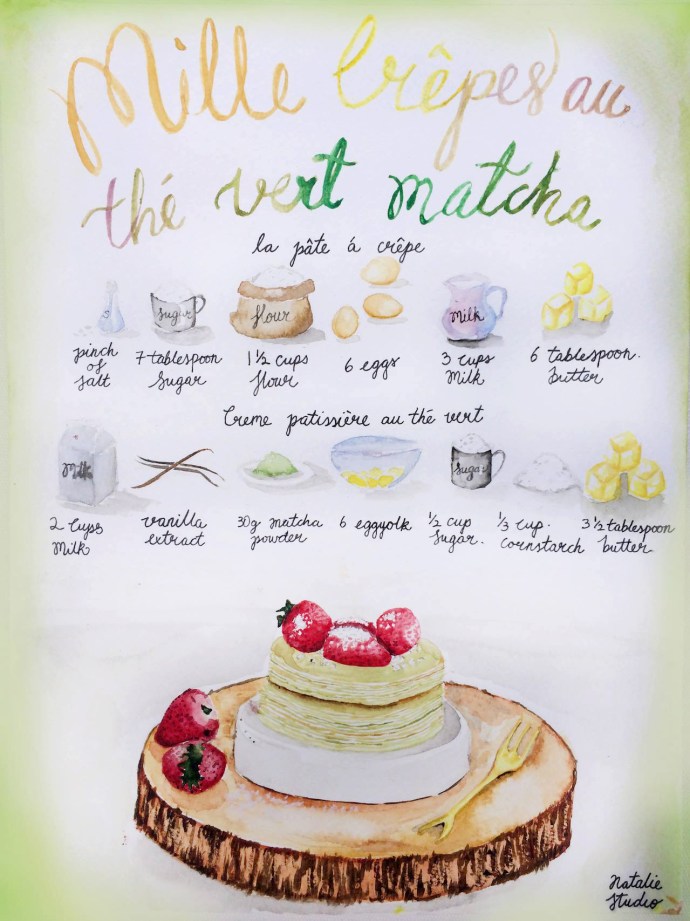 Mille Crêpes au
thé vert matcha
la pâte á crêpe
sugar
flour
Milk
pinch of salt
7 tablespoon Sugar
1 ½ cups flour
6 eggs
3 cups Milk
6 tablespoon. butter
Creme patissière au thé vert
Milk
sugar
2 cups Milk
vanilla extract
30g matcha powder
6 eggyolk
½ cup Sugar.
⅓ cup. cornstarch
3 ½ tablespoon butter
Natalie
Studio